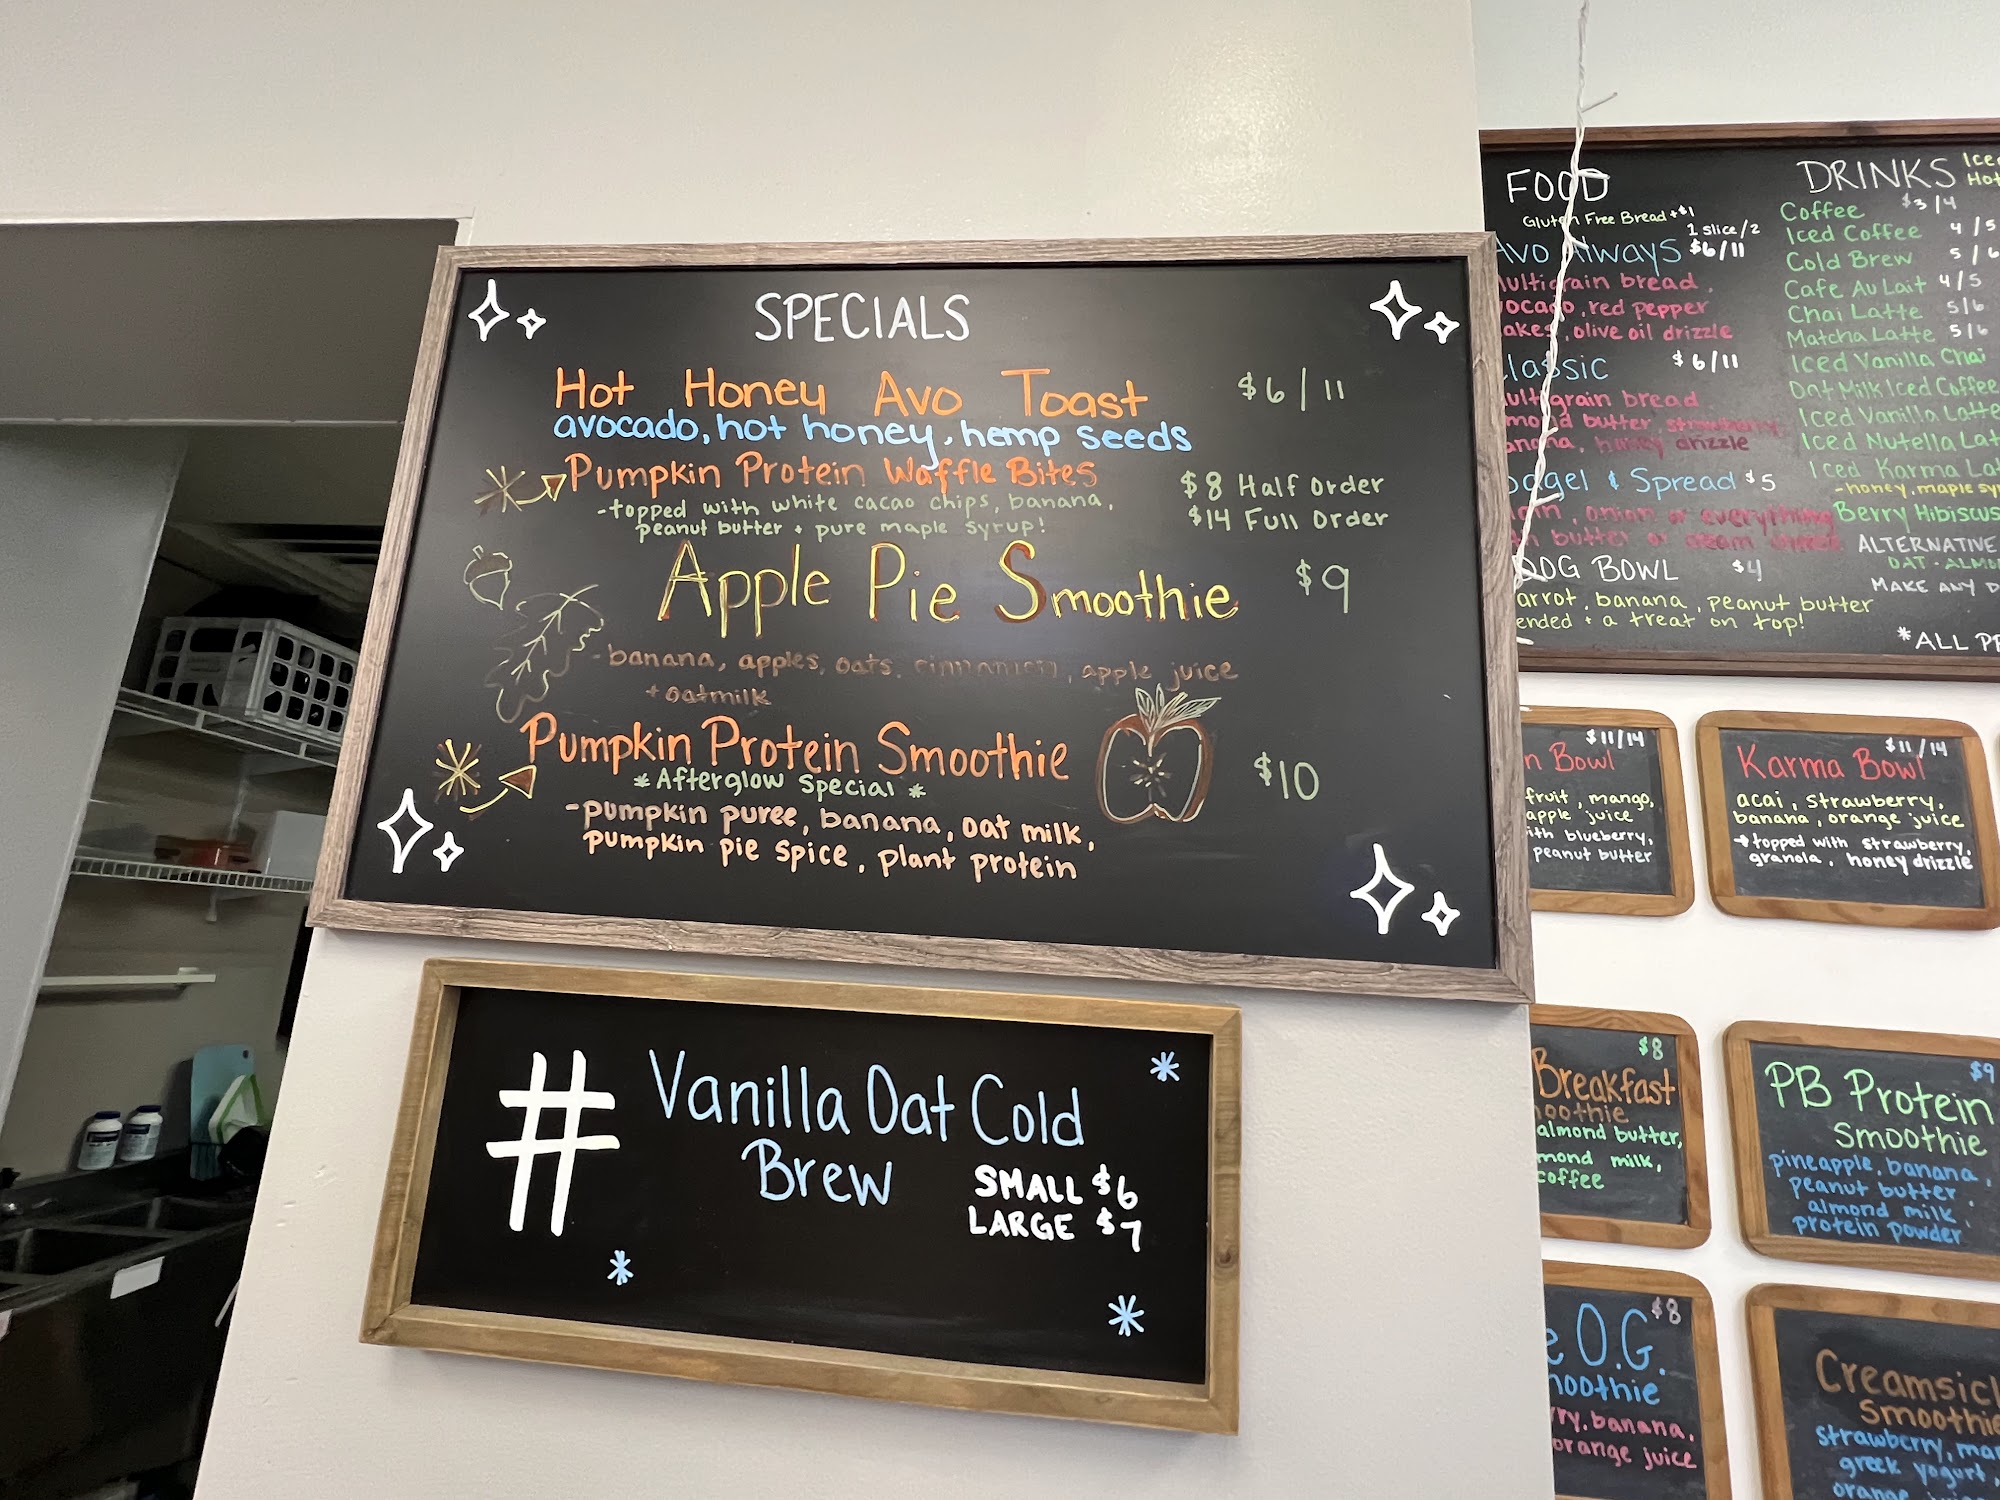 SPECIALS
Hot Honey Avo Toast $6/11
avocado, hot honey, hemp seeds
Pumpkin Protein Waffle Bites
-topped with white cacao chips, banana,
peanut butter + pure maple syrup!
$8 Half Order
$14 Full Order
Apple Pie Smoothie $9
-banana, apples, oats, cinnamon, apple juice
+ oatmilk
Pumpkin Protein Smoothie $10
*Afterglow Special*
-pumpkin puree, banana, oat milk,
pumpkin pie spice, plant protein
# Vanilla Oat Cold
Brew
SMALL $6
LARGE $7
FOOD
Gluten Free Bread +$1
1 slice/2
Avo Always $6/11
multigrain bread,
avocado, red pepper
flakes, olive oil drizzle
Classic $6/11
multigrain bread
almond butter, strawberry
banana, honey drizzle
Bagel & Spread $5
plain, onion or everything
with butter or cream cheese
DOG BOWL $4
carrot, banana, peanut butter
blended + a treat on top!
DRINKS
Coffee $3/4
Iced Coffee 4/5
Cold Brew 5/6
Cafe Au Lait 4/5
Chai Latte 5/6
Matcha Latte 5/6
Iced Vanilla Chai
Oat Milk Iced Coffee
Iced Vanilla Latte
Iced Nutella
Iced Karma
-honey, maple
Berry Hibiscus
ALTERNATIVE
OAT-
MAKE ANY
*ALL
$11/14
Bowl
fruit, mango,
apple juice
with blueberry,
peanut butter
$11/14
Karma Bowl
acai, strawberry,
banana, orange juice
→topped with strawberry,
granola, honey drizzle
$8
Breakfast
smoothie
almond butter,
almond milk,
coffee
$9
PB Protein
Smoothie
pineapple, banana,
peanut butter,
almond milk,
protein powder
$8
O.G.
smoothie
banana,
orange juice
Smoothie
strawberry,
greek yogurt,
orange